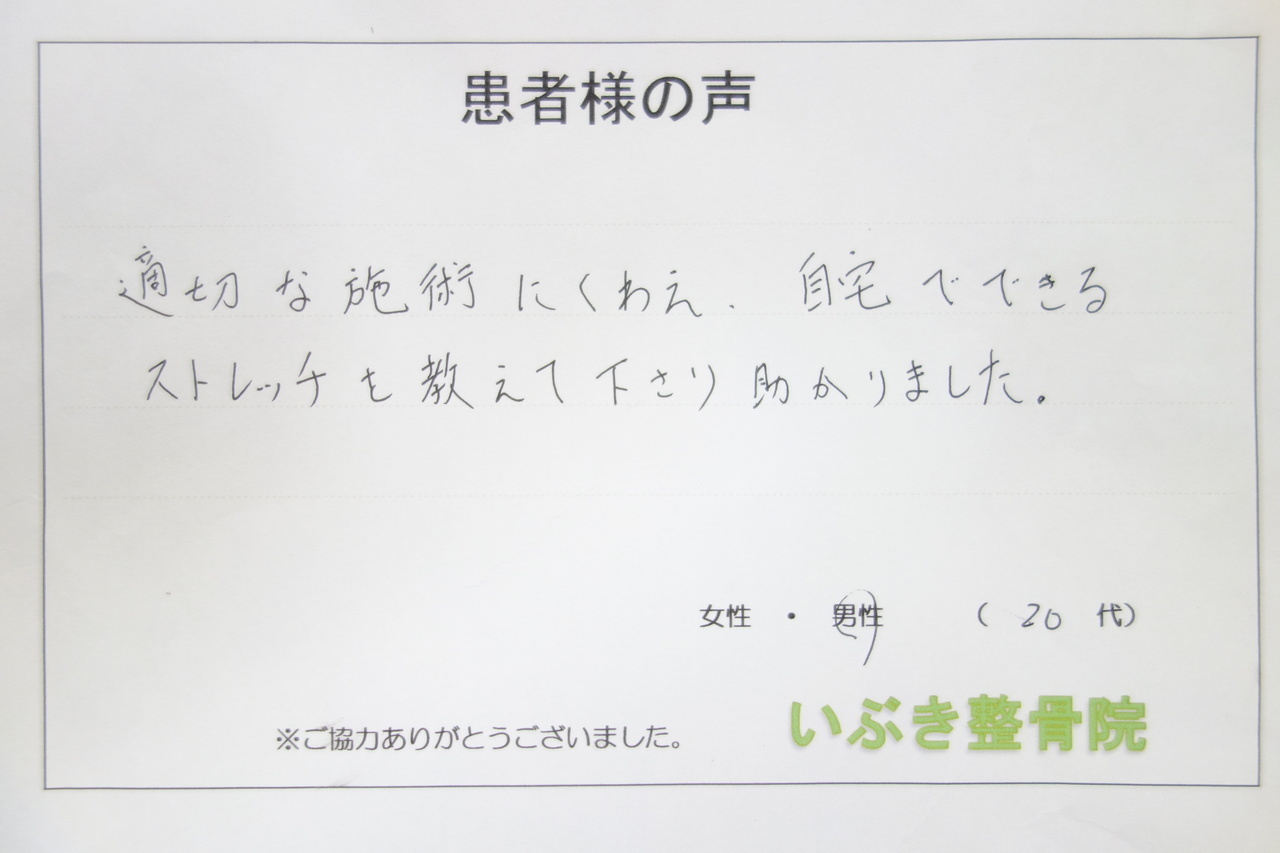 患者様の声
適切な施術にくわえ、自宅でできる
ストレッチを教えて下さり助かりました。
女性 ・ 男性 （ 20 代）
※ご協力ありがとうございました。
いぶき整骨院